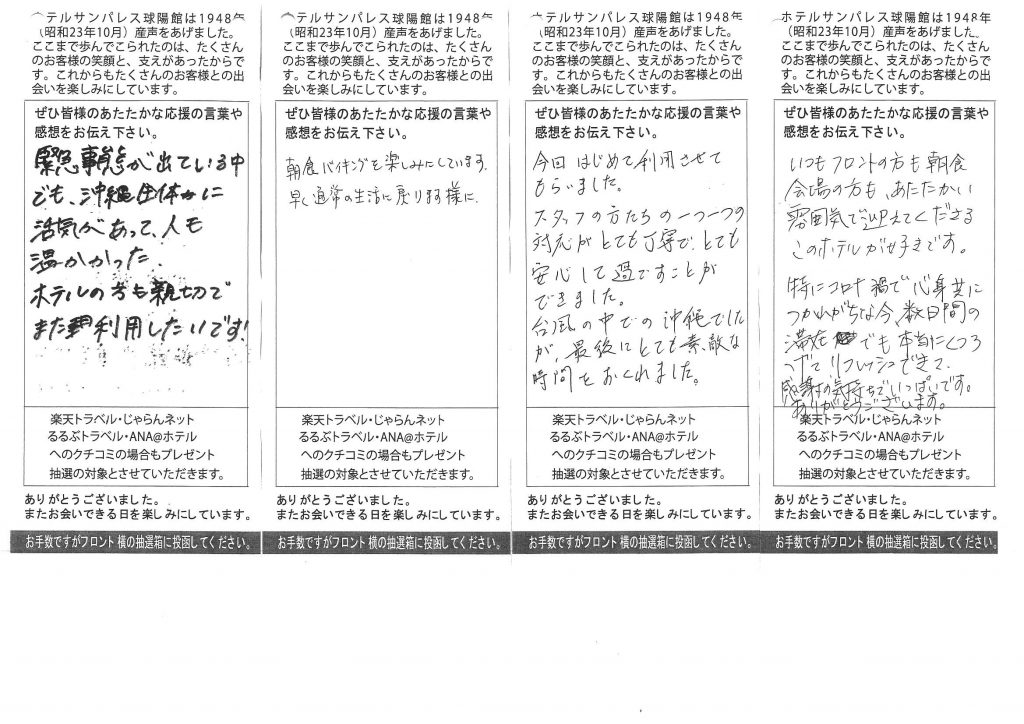 テルサンパレス球陽館は1948年
（昭和23年10月）産声をあげました。
ここまで歩んでこられたのは、たくさん
のお客様の笑顔と、支えがあったからで
す。これからもたくさんのお客様との出
会いを楽しみにしています。
ぜひ皆様のあたたかな応援の言葉や
感想をお伝え下さい。
緊急事態が出ている中
でも、沖縄自体が
活気があって、人も
温かかった。
ホテルの方も親切で
また利用したいです!
楽天トラベル・じゃらんネット
るるぶトラベル・ANA@ホテル
へのクチコミの場合もプレゼント
抽選の対象とさせていただきます。
ありがとうございました。
またお会いできる日を楽しみにしています。
お手数ですがフロント横の抽選箱に投函してください。
テルサンパレス球陽館は1948年
（昭和23年10月）産声をあげました。
ここまで歩んでこられたのは、たくさん
のお客様の笑顔と、支えがあったからで
す。これからもたくさんのお客様との出
会いを楽しみにしています。
ぜひ皆様のあたたかな応援の言葉や
感想をお伝え下さい。
朝食バイキングを楽しみにしています。
早く通常の生活に戻ります様に。
楽天トラベル・じゃらんネット
るるぶトラベル・ANA@ホテル
へのクチコミの場合もプレゼント
抽選の対象とさせていただきます。
ありがとうございました。
またお会いできる日を楽しみにしています。
お手数ですがフロント横の抽選箱に投函してください。
テルサンパレス球陽館は1948年
（昭和23年10月）産声をあげました。
ここまで歩んでこられたのは、たくさん
のお客様の笑顔と、支えがあったからで
す。これからもたくさんのお客様との出
会いを楽しみにしています。
ぜひ皆様のあたたかな応援の言葉や
感想をお伝え下さい。
今回はじめて利用させて
もらいました。
スタッフの方たちの一つ一つの
対応がとても丁寧で、とても
安心して過ごすことが
できました。
台風の中での沖縄でした
が、最後にとても素敵な
時間をおくれました。
楽天トラベル・じゃらんネット
るるぶトラベル・ANA@ホテル
へのクチコミの場合もプレゼント
抽選の対象とさせていただきます。
ありがとうございました。
またお会いできる日を楽しみにしています。
お手数ですがフロント横の抽選箱に投函してください。
ホテルサンパレス球陽館は1948年
（昭和23年10月）産声をあげました。
ここまで歩んでこられたのは、たくさん
のお客様の笑顔と、支えがあったからで
す。これからもたくさんのお客様との出
会いを楽しみにしています。
ぜひ皆様のあたたかな応援の言葉や
感想をお伝え下さい。
いつもフロントの方も朝食
会場の方も、あたたかい
雰囲気で迎えてくださる
このホテルが好きです。
特にコロナ禍で心身共に
つかれがちな今、数日間の
滞在でも本当にくつろ
げてリフレッシュできて、
感謝の気持ちでいっぱいです。
ありがとうございます。
楽天トラベル・じゃらんネット
るるぶトラベル・ANA@ホテル
へのクチコミの場合もプレゼント
抽選の対象とさせていただきます。
ありがとうございました。
またお会いできる日を楽しみにしています。
お手数ですがフロント横の抽選箱に投函してください。